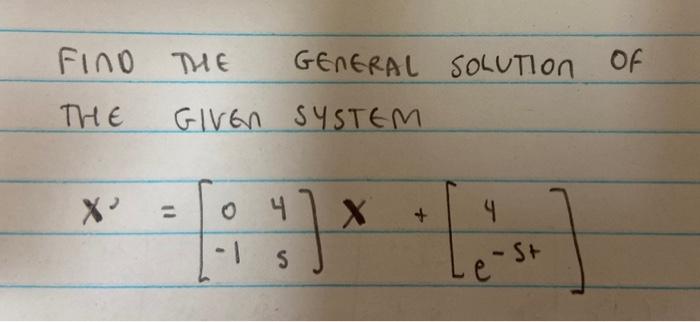 FIND THE GENERAL SOLUTION OF
THE GIVEN SYSTEM
X' = [0 4 -1 5] X + [4 e^-5t]